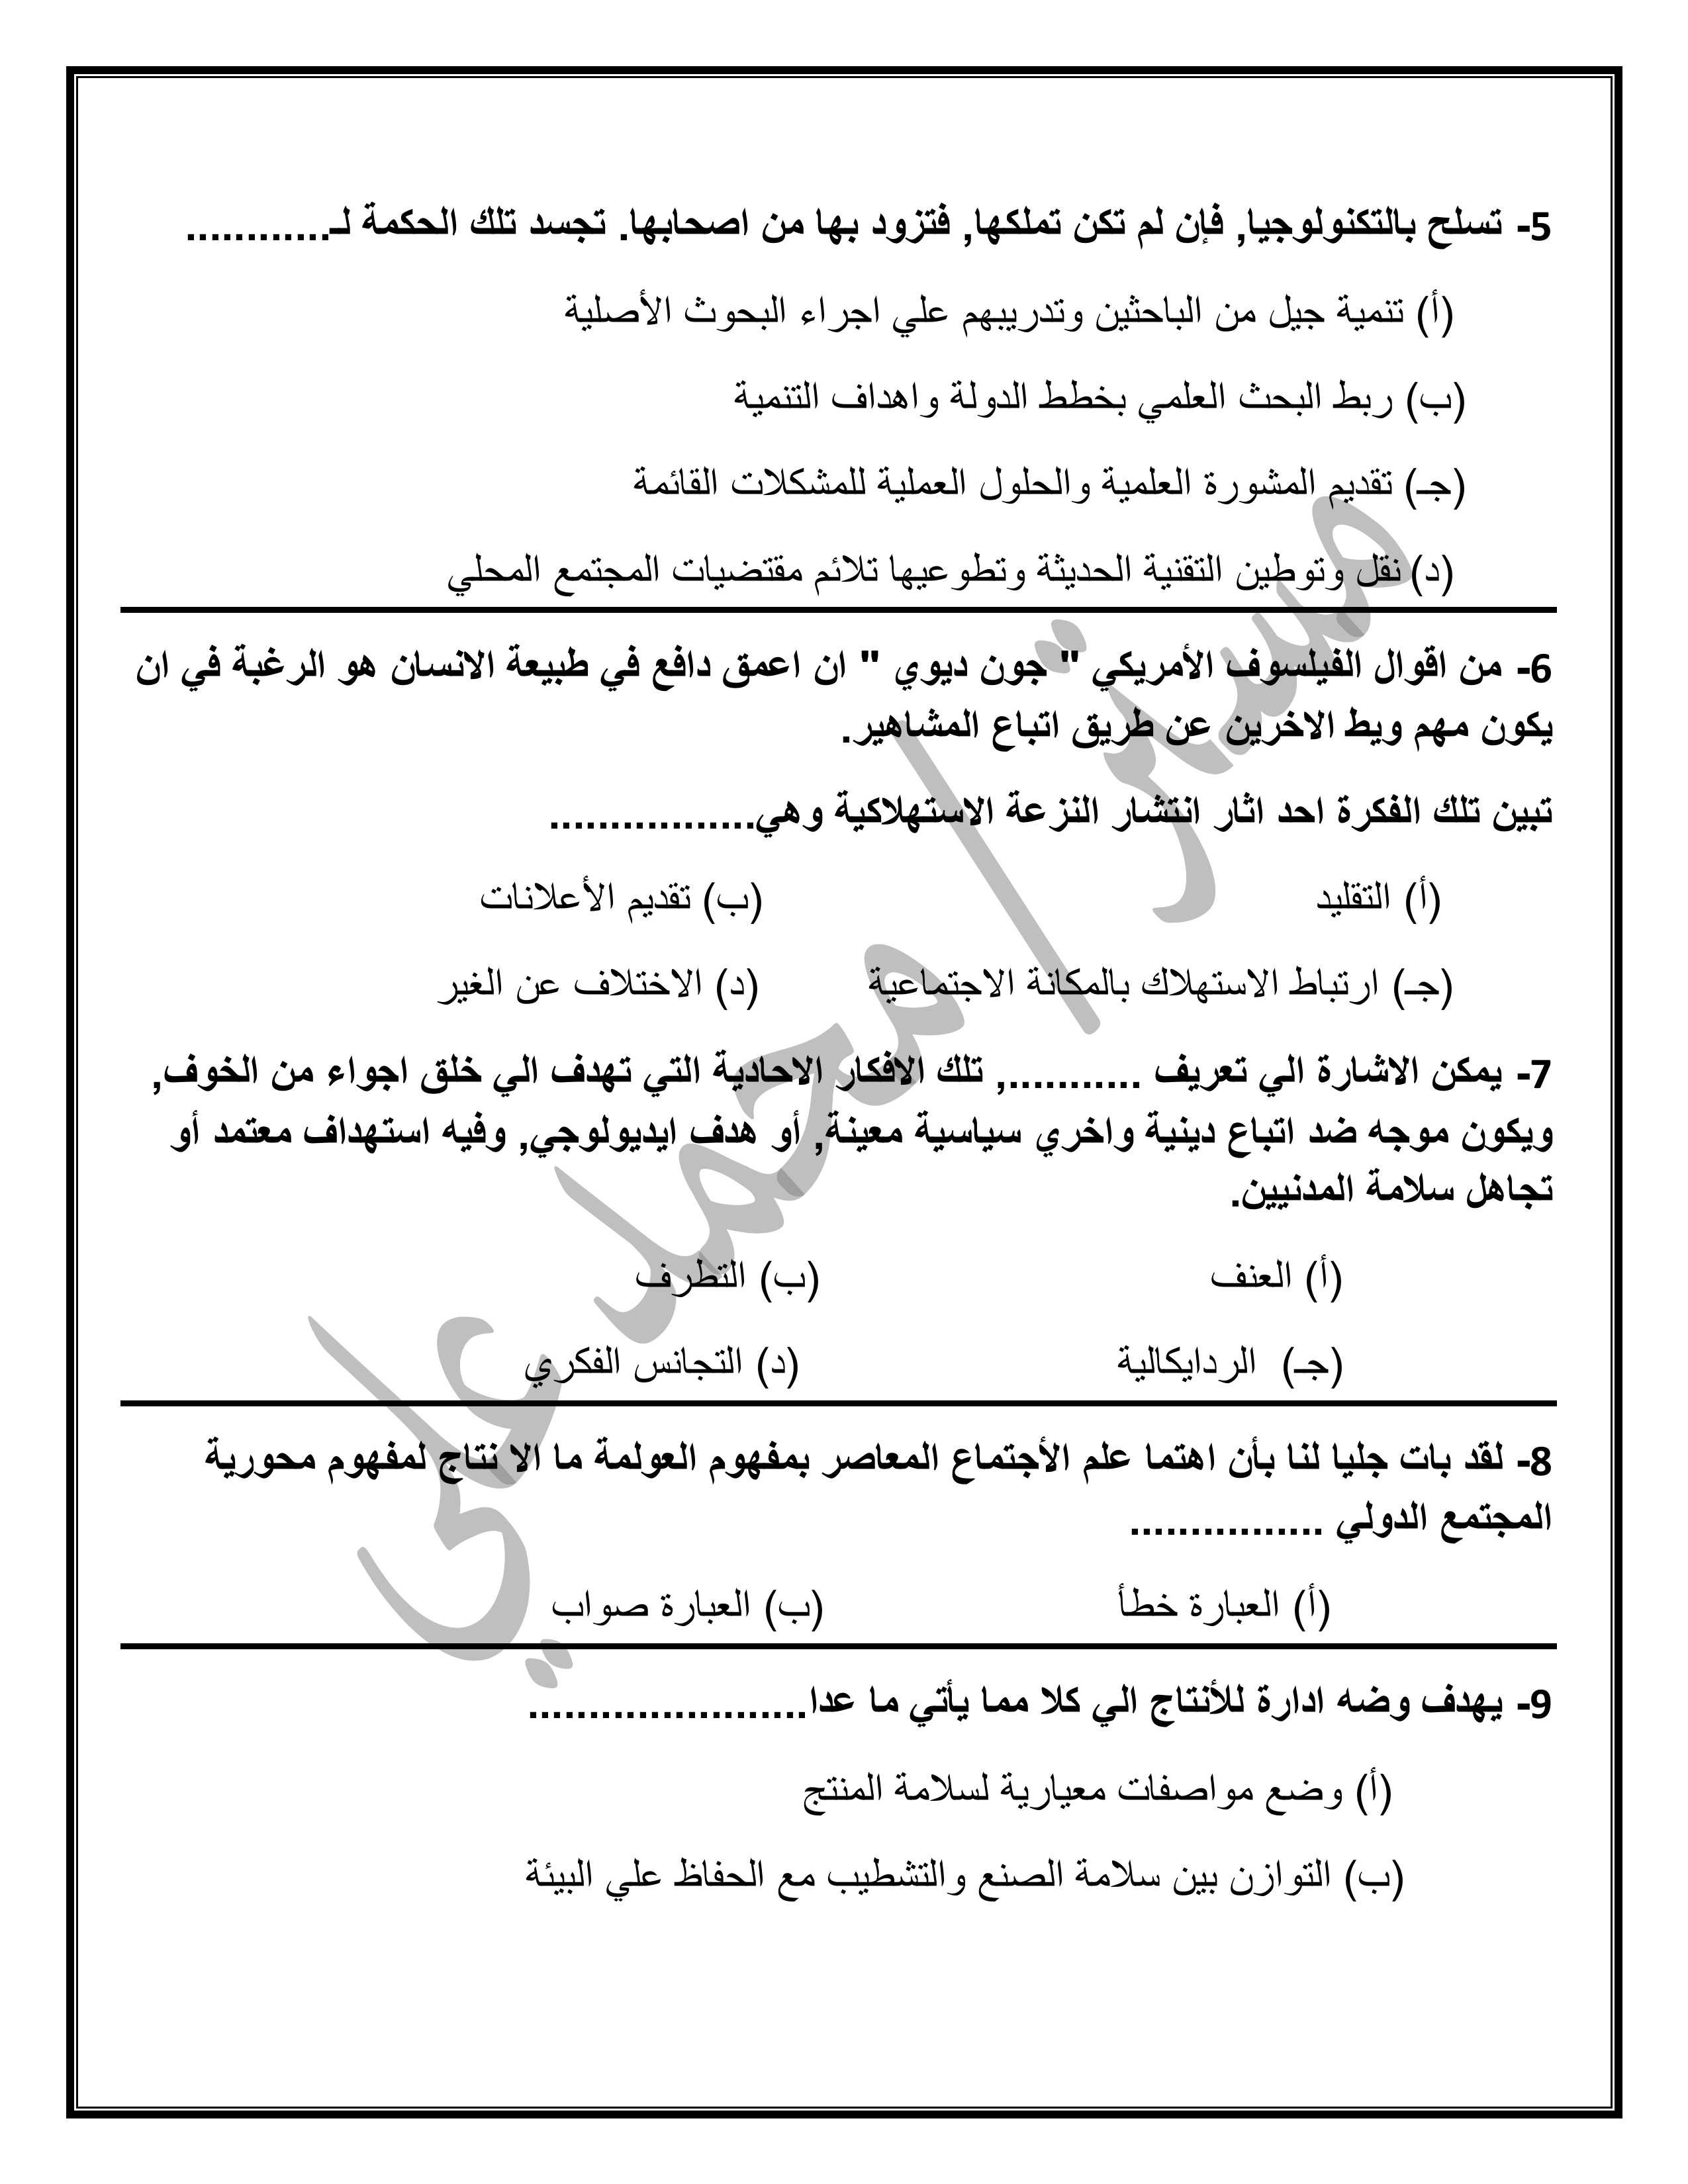 5- تسلح بالتكنولوجيا, فإن لم تكن تملكها, فتزود بها من اصحابها. تجسد تلك الحكمة لـ............
(أ) تنمية جيل من الباحثين وتدريبهم علي اجراء البحوث الأصلية
(ب) ربط البحث العلمي بخطط الدولة واهداف التنمية
(جـ) تقديم المشورة العلمية والحلول العملية للمشكلات القائمة
(د) نقل وتوطين التقنية الحديثة وتطوعيها تلائم مقتضيات المجتمع المحلي
6- من اقوال الفيلسوف الأمريكي " جون ديوي " ان اعمق دافع في طبيعة الانسان هو الرغبة في ان
يكون مهم ويط الاخرين عن طريق اتباع المشاهير.
تبين تلك الفكرة احد اثار انتشار النزعة الاستهلاكية وهي.................
(أ) التقليد (ب) تقديم الأعلانات
(جـ) ارتباط الاستهلاك بالمكانة الاجتماعية (د) الاختلاف عن الغير
7- يمكن الاشارة الي تعريف ..........., تلك الافكار الاحادية التي تهدف الي خلق اجواء من الخوف,
ويكون موجه ضد اتباع دينية واخري سياسية معينة, أو هدف ايديولوجي, وفيه استهداف معتمد أو
تجاهل سلامة المدنيين.
(أ) العنف (ب) التطرف
(جـ) الردايكالية (د) التجانس الفكري
8- لقد بات جليا لنا بأن اهتما علم الأجتماع المعاصر بمفهوم العولمة ما الا نتاج لمفهوم محورية
المجتمع الدولي ................
(أ) العبارة خطأ (ب) العبارة صواب
9- يهدف وضه ادارة للأنتاج الي كلا مما يأتي ما عدا.......................
(أ) وضع مواصفات معيارية لسلامة المنتج
(ب) التوازن بين سلامة الصنع والتشطيب مع الحفاظ علي البيئة
مستر/ محمد علي